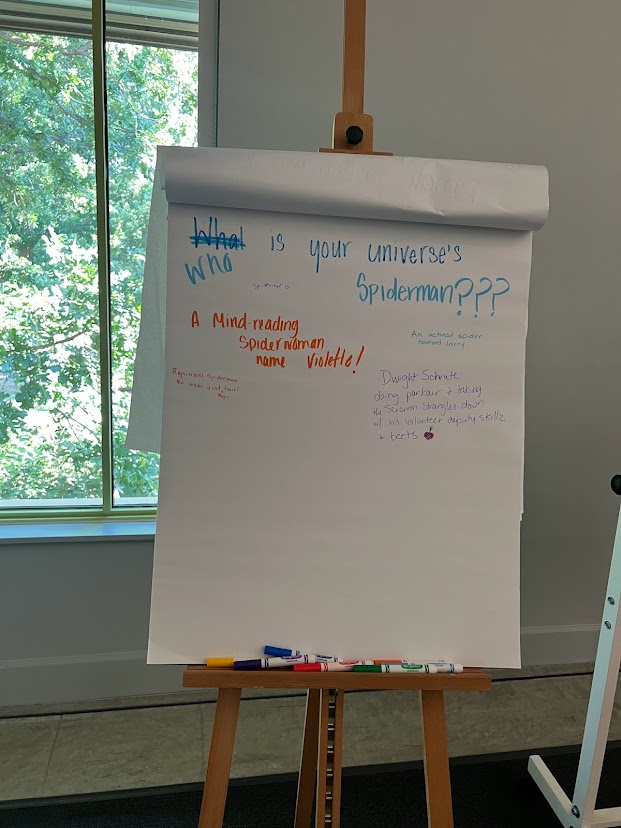 What is your universe's
Who
Spiderman???
A Mind-reading
Spiderwoman
name Violette!
An actual spider
named larry
Rapunzel Spiderman
hair
Dwight Schrute
doing parkour + taking
the Scranton Strangler down
w/ his volunteer deputy skillz
+ beets